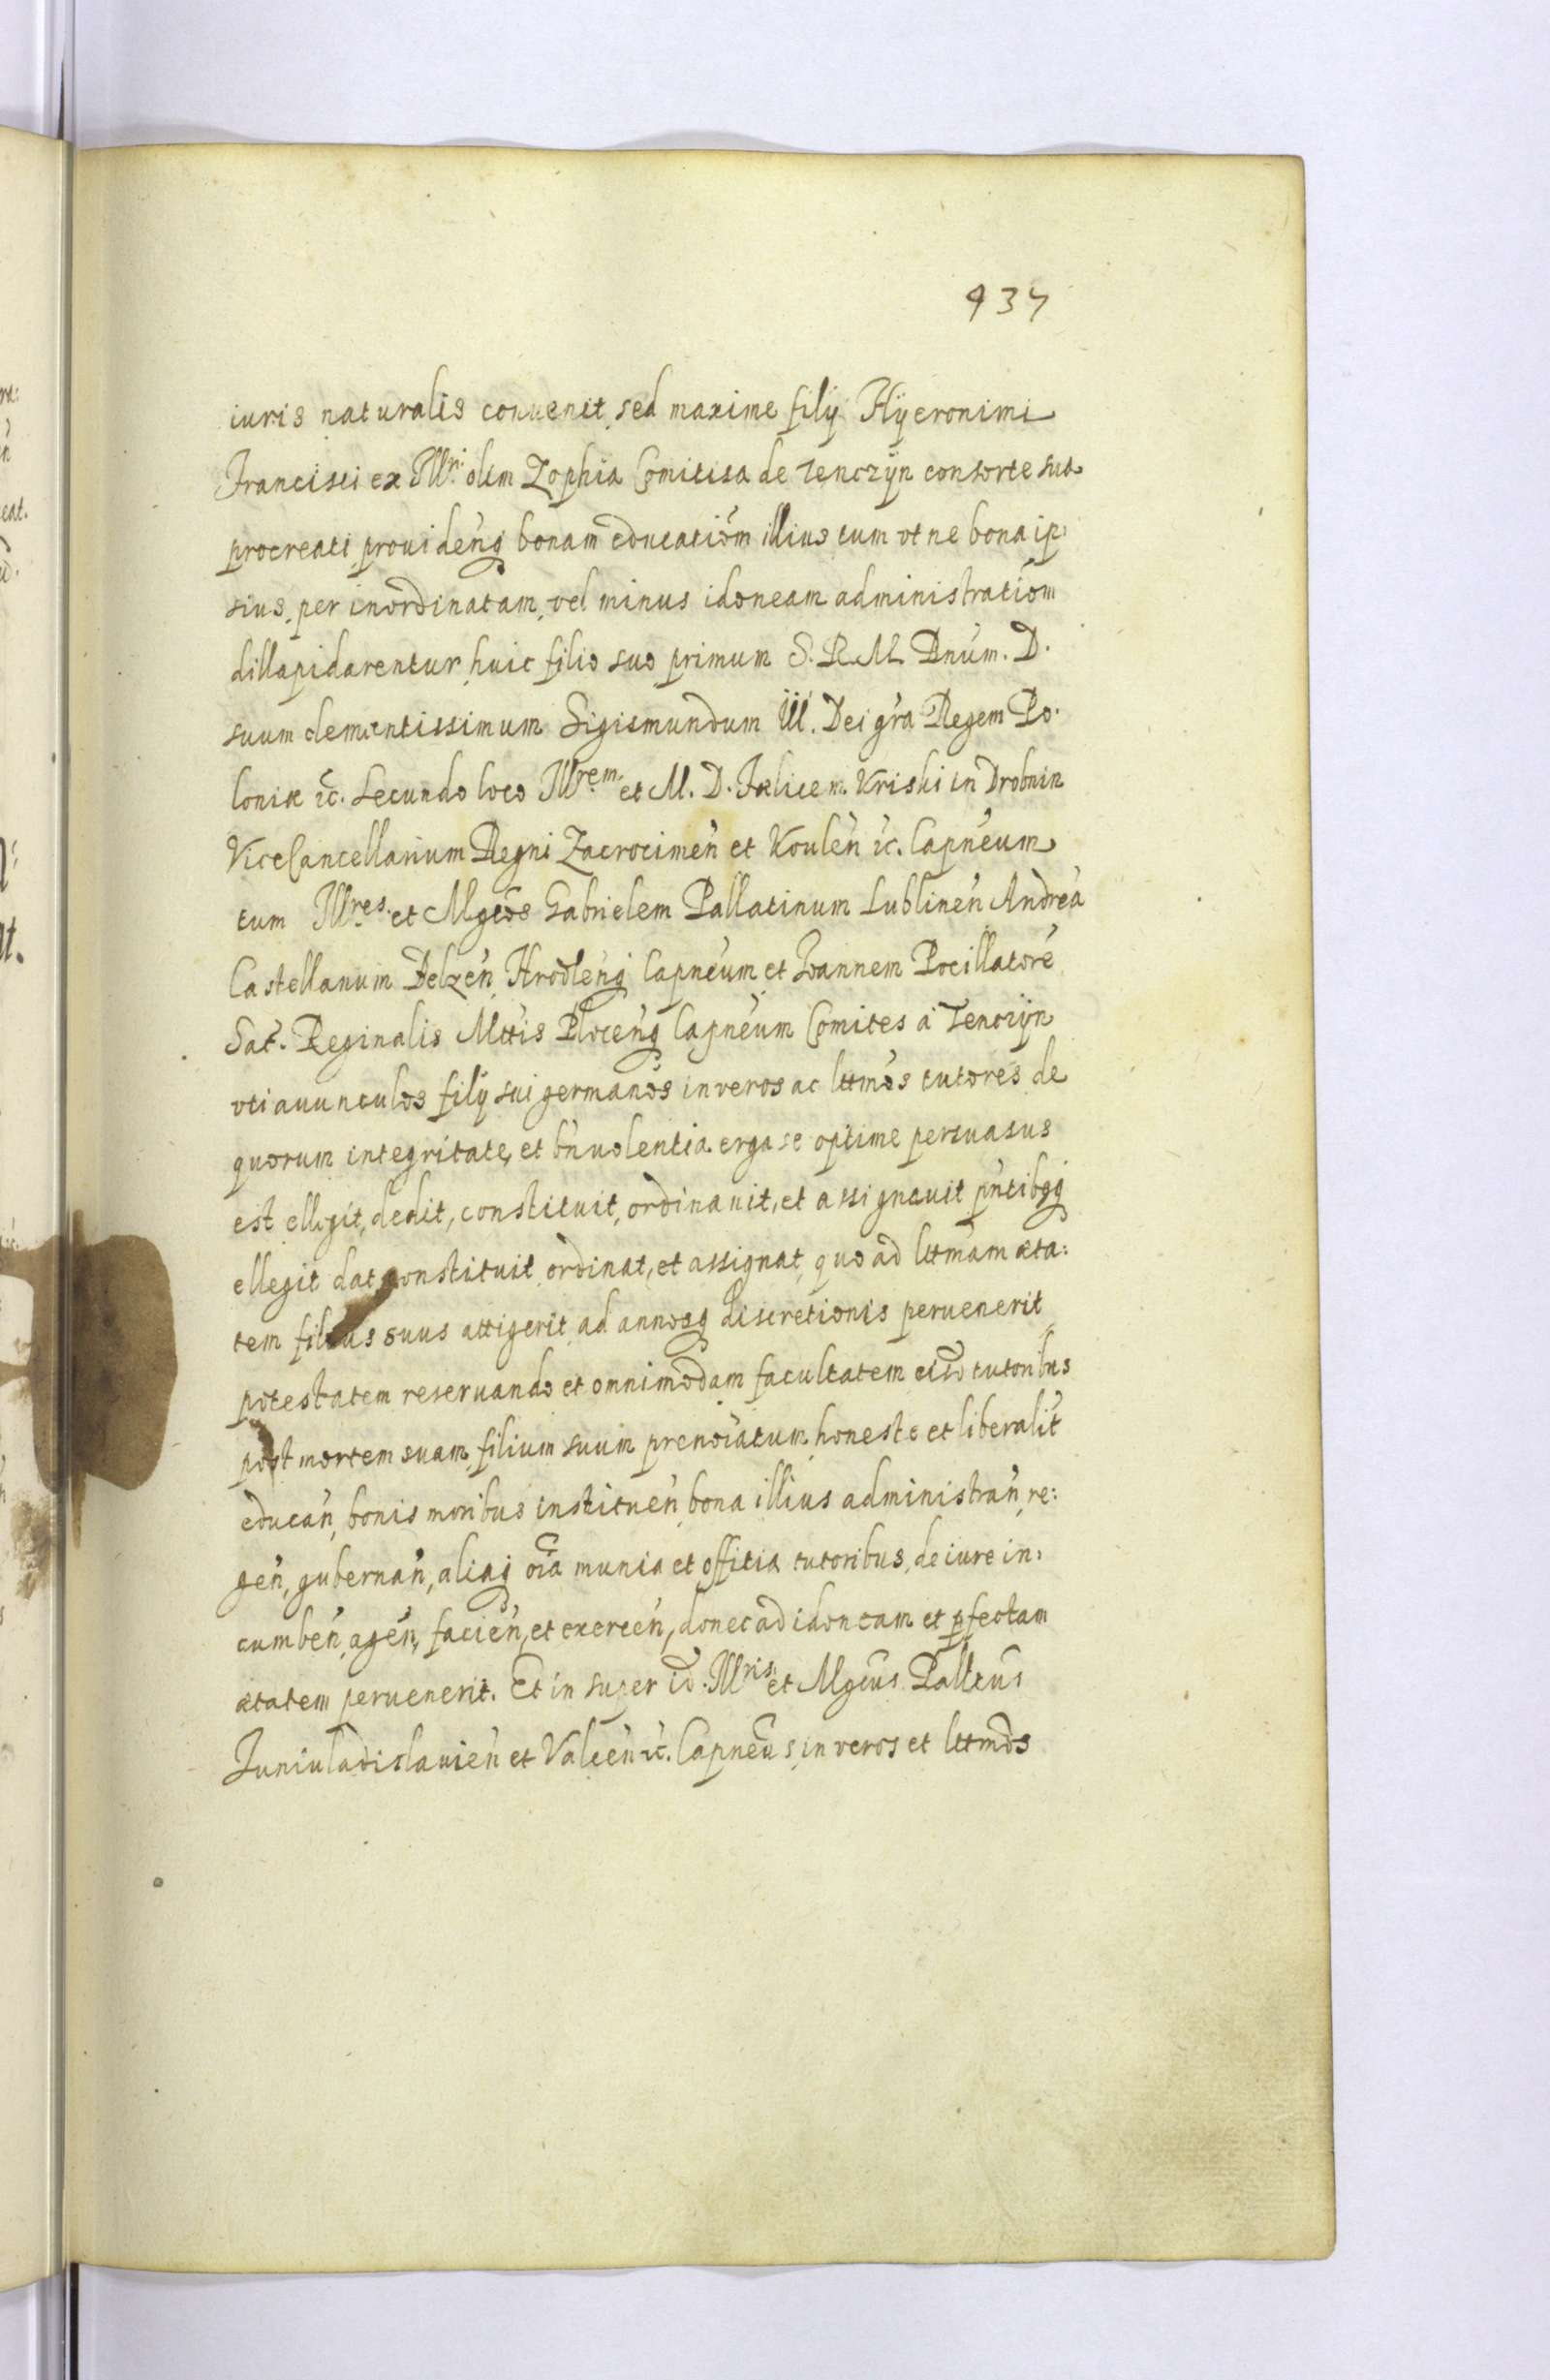 937
iuris naturalis conuenit, sed maxime filÿ Hÿeronimi
Francisci ex Illri: olim Zophia Comitisa de Tenczÿn consorte sua
procreati, prouideńq bonam educatiõm illius tum vt ne bona ip:
sius, per inordinatam, vel minus idoneam administratiõm
dillapidarentur, huic filio suo primum S. R. M. Dnúm. D.
suum clementissimum Sigismundum III. Dei gra Regem Po:
loniæ ꝛc. Secundo loco Illrem. et M. D. Fælicem Kriski in Drobnin
ViceCancellarium Regni Zacrocimeń et Kouleń ꝛc. Capneum
tum Illres. et Mgcos Gabrielem Pallatinum Lublineń Andreā
Castellanum Belzeń, Hrodleńq Capneum, et Ioannem Pocillatorē
Sac̄. Reginalis Mttis Ploceńq Capneum Comites à Tenczÿn
vti auunculos filÿ sui germanos in veros ac lttmos tutores de
quorum integritate, et bńuolentia erga se optime persuasus
est, ellegit, dedit, constituit, ordinauit, et assignauit pntibqq
ellegit dat, constituit ordinat, et assignat, quo ad lttmam æta:
tem filius suus attigerit, ad annosq discretionis peruenerit
potestatem reseruando et omnimodam facultatem eisd tutoribus
post mortem suam, filium suum prenoiatum, honeste et liberalit̄
educań, bonis moribus institueń, bona illius administrań, re:
geń, gubernań, aliaq oīa munia et offitia tutoribus, de iure in:
cumbeń, ageń, facień, et exerceń, donec ad idoneam et ꝑfectam
ætatem peruenerit. Et in super id. Illris. et Mgcus Palltus
Iuniuladislauień et Valceń ꝛc. Capneus, in veros et lttmos